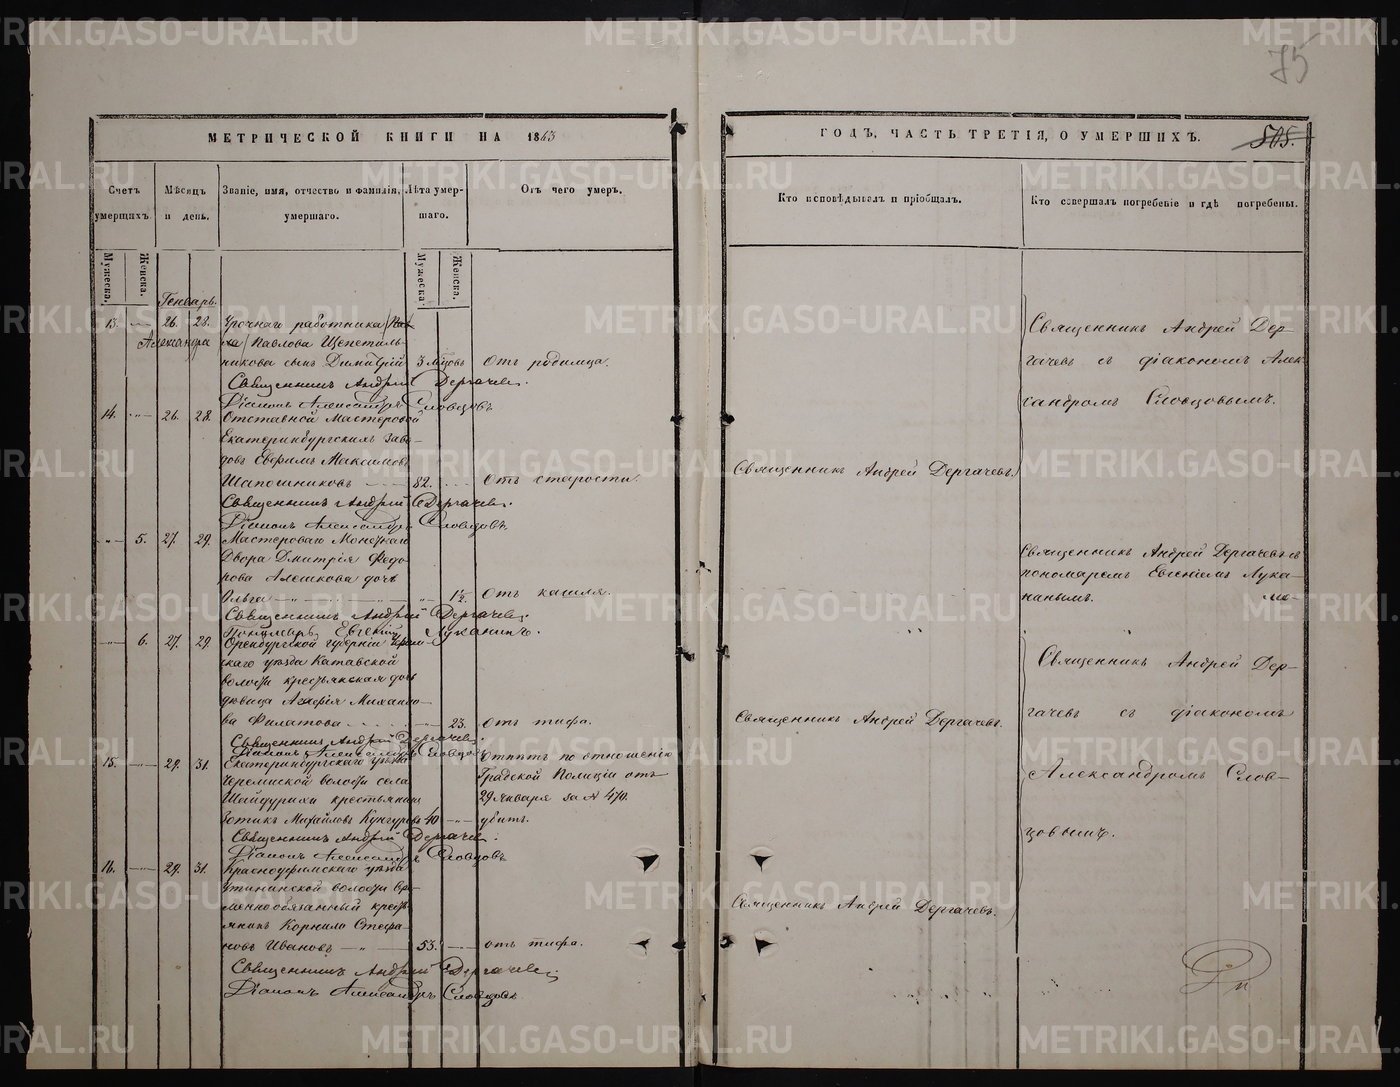 75
МЕТРИЧЕСКОЙ КНИГИ НА 1863
ГОДЪ, ЧАСТЬ ТРЕТІЯ, О УМЕРШИХЪ.
505.
Счетъ умершихъ.
Мѣсяцъ и день.
Званіе, имя, отчество и фамилія, умершаго.
Лѣта умершаго.
Отъ чего умеръ.
Кто исповѣдывалъ и пріобщалъ.
Кто совершалъ погребеніе и гдѣ погребены.
Мужеска.
Женска.
Мужеска.
Женска.
Генварь.
13. 26. 28. Урочнаго работника
Александра Павлова Щепетиль-
никова сынъ Димитрій 3 мѣсцовъ Отъ родимца.
Священникъ Андрей Дергачевъ.
Діаконъ Александръ Словцовъ
14. 26. 28. Отставной Мастеровой
Екатеринбургскихъ заво-
довъ Евфимъ Максимовъ
Шапошниковъ 82. Отъ старости.
Священникъ Андрей Дергачевъ.
Діаконъ Александръ Словцовъ
5. 27. 29. Мастероваго Монетнаго
Двора Дмитрія Федо-
рова Алешкова дочь
Ольга 1½ Отъ кашля.
Священникъ Андрей Дергачевъ.
Пономарь Евгеній Луканинъ.
6. 27. 29. Оренбургской губерніи
скаго уѣзда Катавской
волости крестьянская дочь
дѣвица Михайло-
ва Филатова 23. отъ тифа.
Священникъ Андрей Дергачевъ.
Діаконъ Александръ Словцовъ
15. 29. 31. Екатеринбургскаго уѣзда
волости села
Шайдурихи крестьянинъ
Михайловъ Кунгуровъ 40
Отпѣтъ по отношенію
Градской Полиціи отъ
29 Января за № 470.
убитъ.
Священникъ Андрей Дергачевъ.
Діаконъ Александръ Словцовъ
16. 29. 31. Красноуфимскаго уѣзда
волости вре-
меннообязанный кресть-
янинъ Корнило Стефа-
новъ Ивановъ 53. отъ тифа.
Священникъ Андрей Дергачевъ.
Діаконъ Александръ Словцовъ
Священникъ Андрей Дергачевъ.
Священникъ Андрей Дергачевъ.
Священникъ Андрей Дергачевъ.
Священникъ Андрей Дер-
гачевъ съ діакономъ Алек-
сандромъ Словцовымъ.
Священникъ Андрей Дергачевъ съ
пономаремъ Евгеніемъ Лука-
нинымъ.
Священникъ Андрей Дер-
гачевъ съ діакономъ
Александромъ Слов-
цовымъ.
METRIKI.GASO-URAL.RU